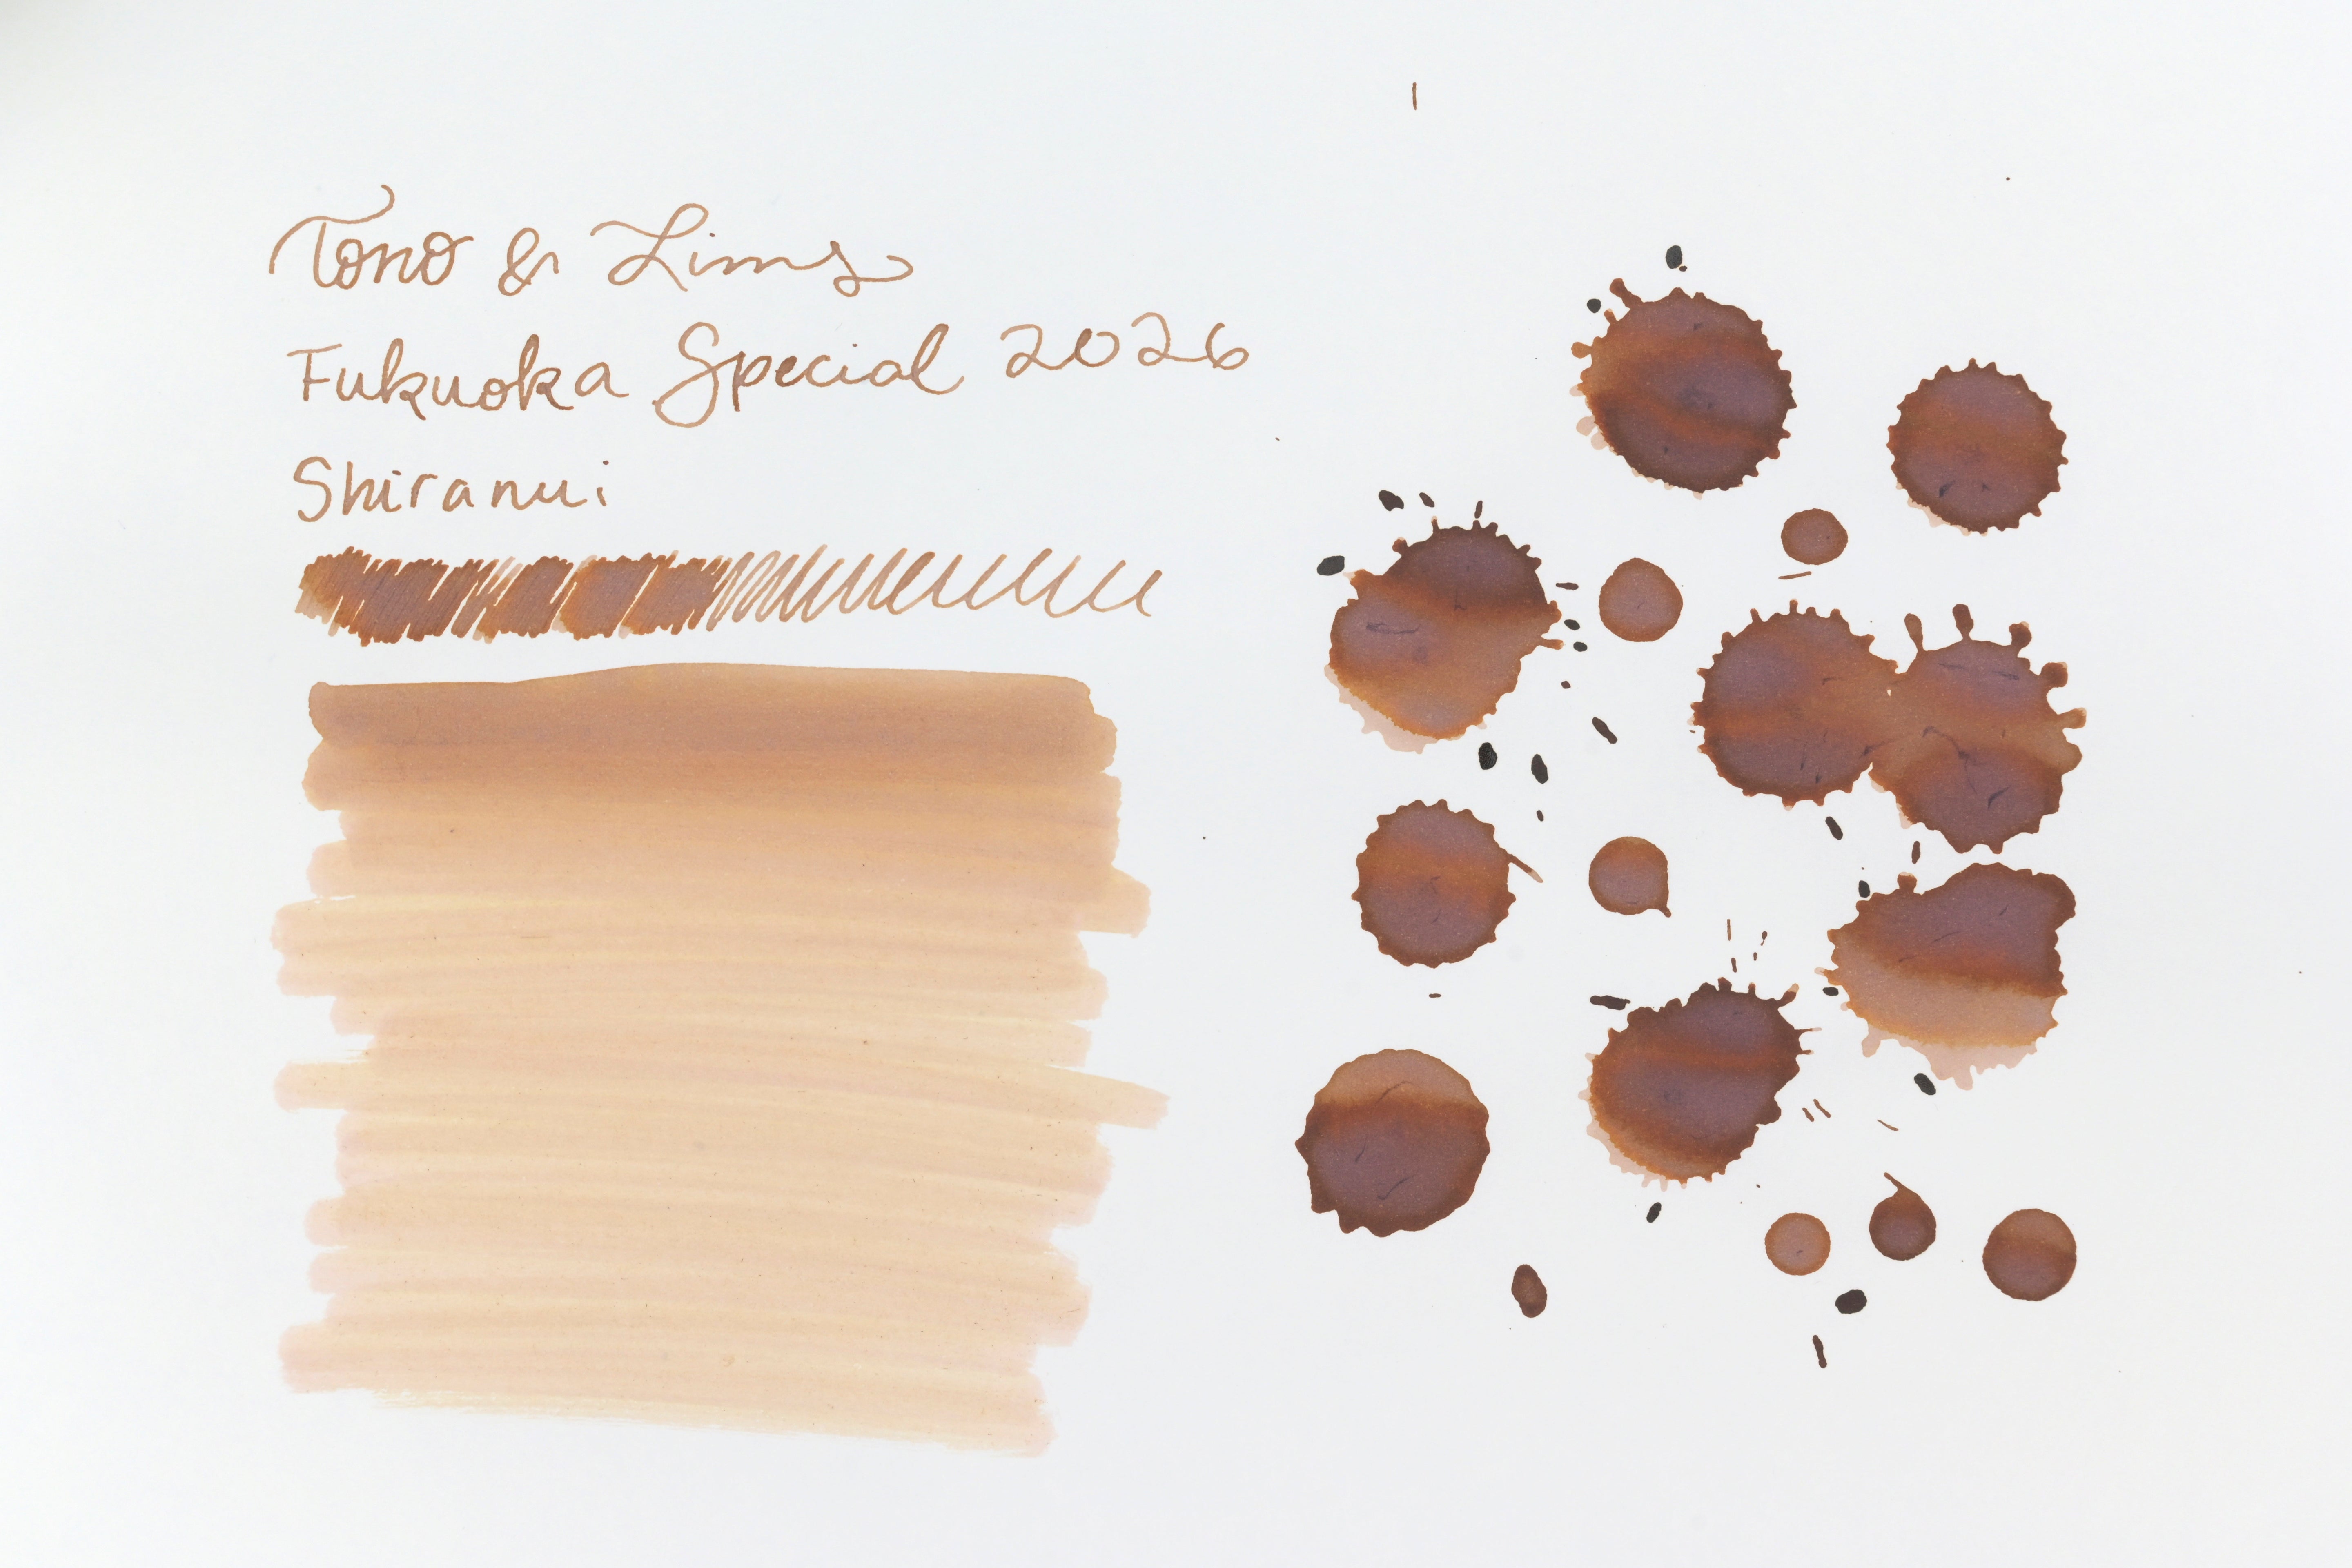 Tono & Lims
Fukuoka Special 2026
Shiranui